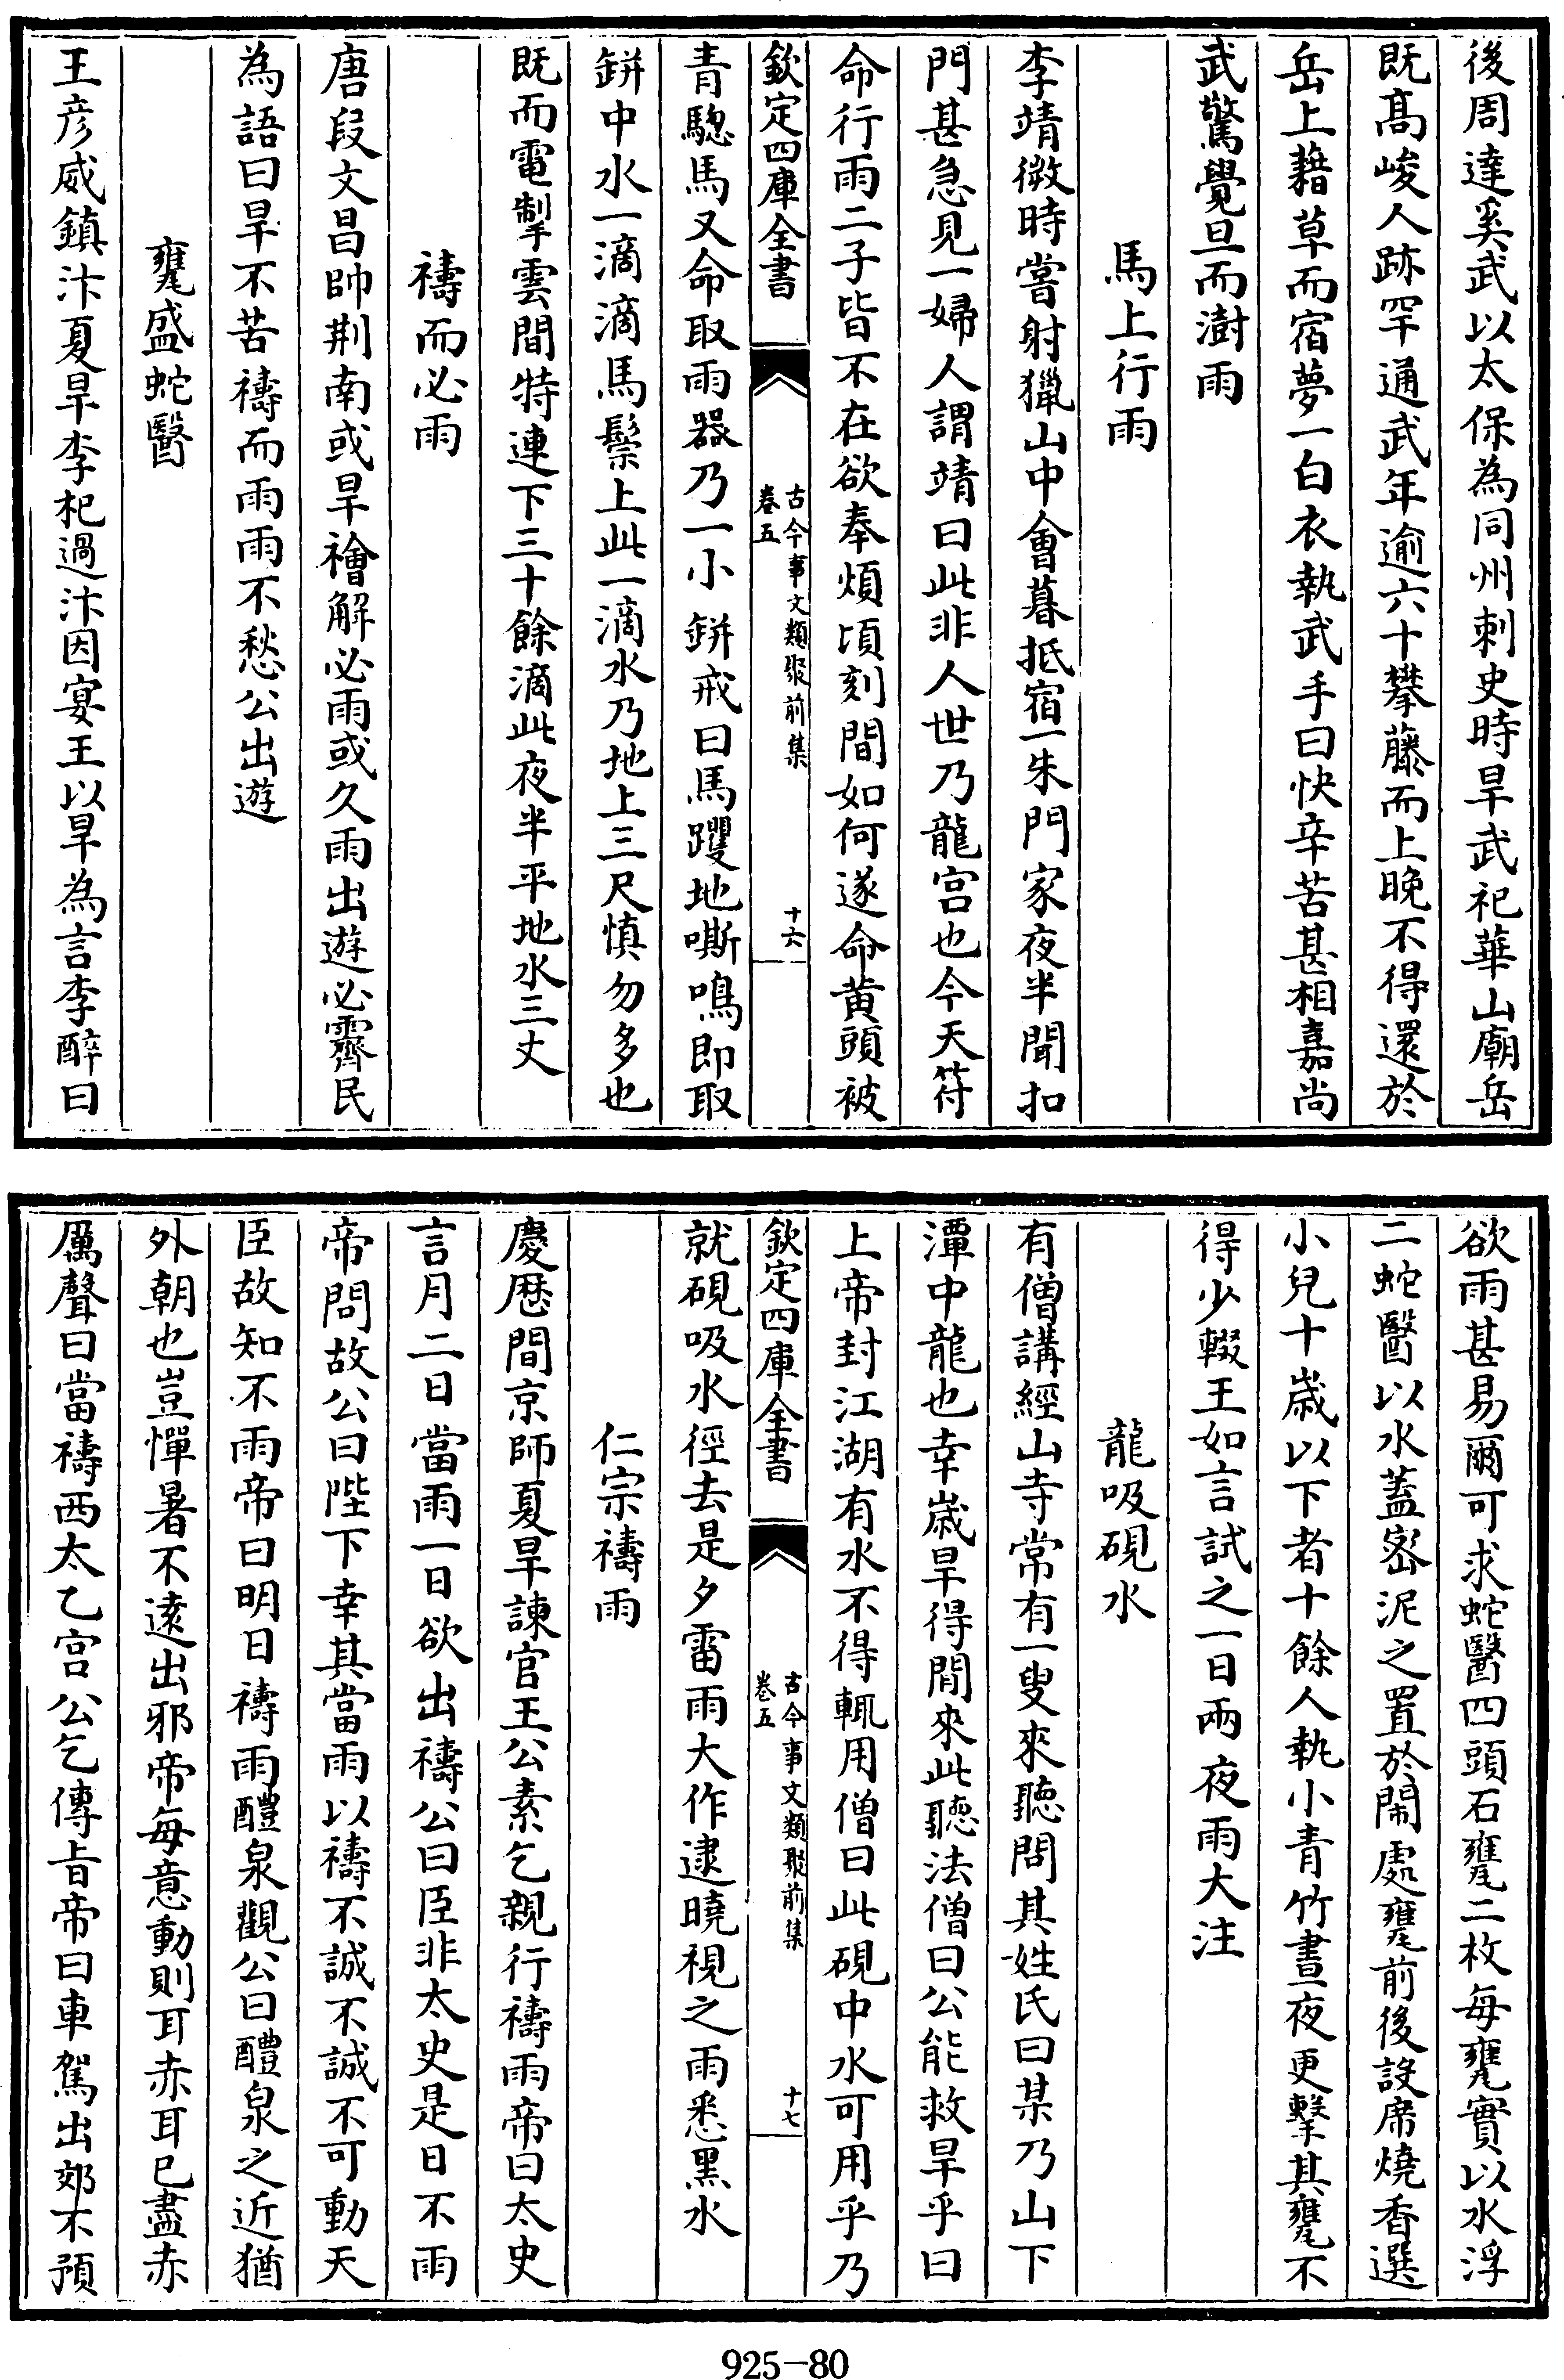 後周達奚武以太保為同州刺史時旱武祀華山廟岳
既髙峻人跡罕通武年逾六十攀藤而上晚不得還於
岳上藉草而宿夢一白衣執武手曰快辛苦甚相嘉尚
武驚覺旦而澍雨
馬上行雨
李靖微時嘗射獵山中會暮抵宿一朱門家夜半聞扣
門甚急見一婦人謂靖曰此非人世乃龍宫也今天符
命行雨二子皆不在欲奉煩頃刻間如何遂命黄頭被
欽定四庫全書
古今事文類聚前集
卷五
十六
青驄馬又命取雨器乃一小缾戒曰馬躩地嘶鳴即取
缾中水一滴滴馬鬃上此一滴水乃地上三尺慎勿多也
既而電掣雲間特連下三十餘滴此夜半平地水三丈
禱而必雨
唐段文昌帥荆南或旱禬解必雨或久雨出遊必霽民
為語曰旱不苦禱而雨雨不愁公出遊
甕盛蛇醫
王彦威鎮汴夏旱李杞過汴因宴王以旱為言李醉曰
欲雨甚易爾可求蛇醫四頭石甕二枚每甕實以水浮
二蛇醫以水蓋宻泥之置於閙處甕前後設席燒香選
小兒十歳以下者十餘人執小青竹晝夜更擊其甕不
得少輟王如言試之一日兩夜雨大注
龍吸硯水
有僧講經山寺常有一叟來聽問其姓氏曰某乃山下
潭中龍也幸歳旱得閒來此聽法僧曰公能救旱乎曰
上帝封江湖有水不得輒用僧曰此硯中水可用乎乃
欽定四庫全書
古今事文類聚前集
卷五
十七
就硯吸水徑去是夕雷雨大作逮曉視之雨悉黑水
仁宗禱雨
慶厯間京師夏旱諫官王公素乞親行禱雨帝曰太史
言月二日當雨一日欲出禱公曰臣非太史是日不雨
帝問故公曰陛下幸其當雨以禱不誠不誠不可動天
臣故知不雨帝曰明日禱雨醴泉觀公曰醴泉之近猶
外朝也豈憚暑不逺出邪帝每意動則耳赤耳已盡赤
厲聲曰當禱西太乙宫公乞傳旨帝曰車駕出郊不預
925-80